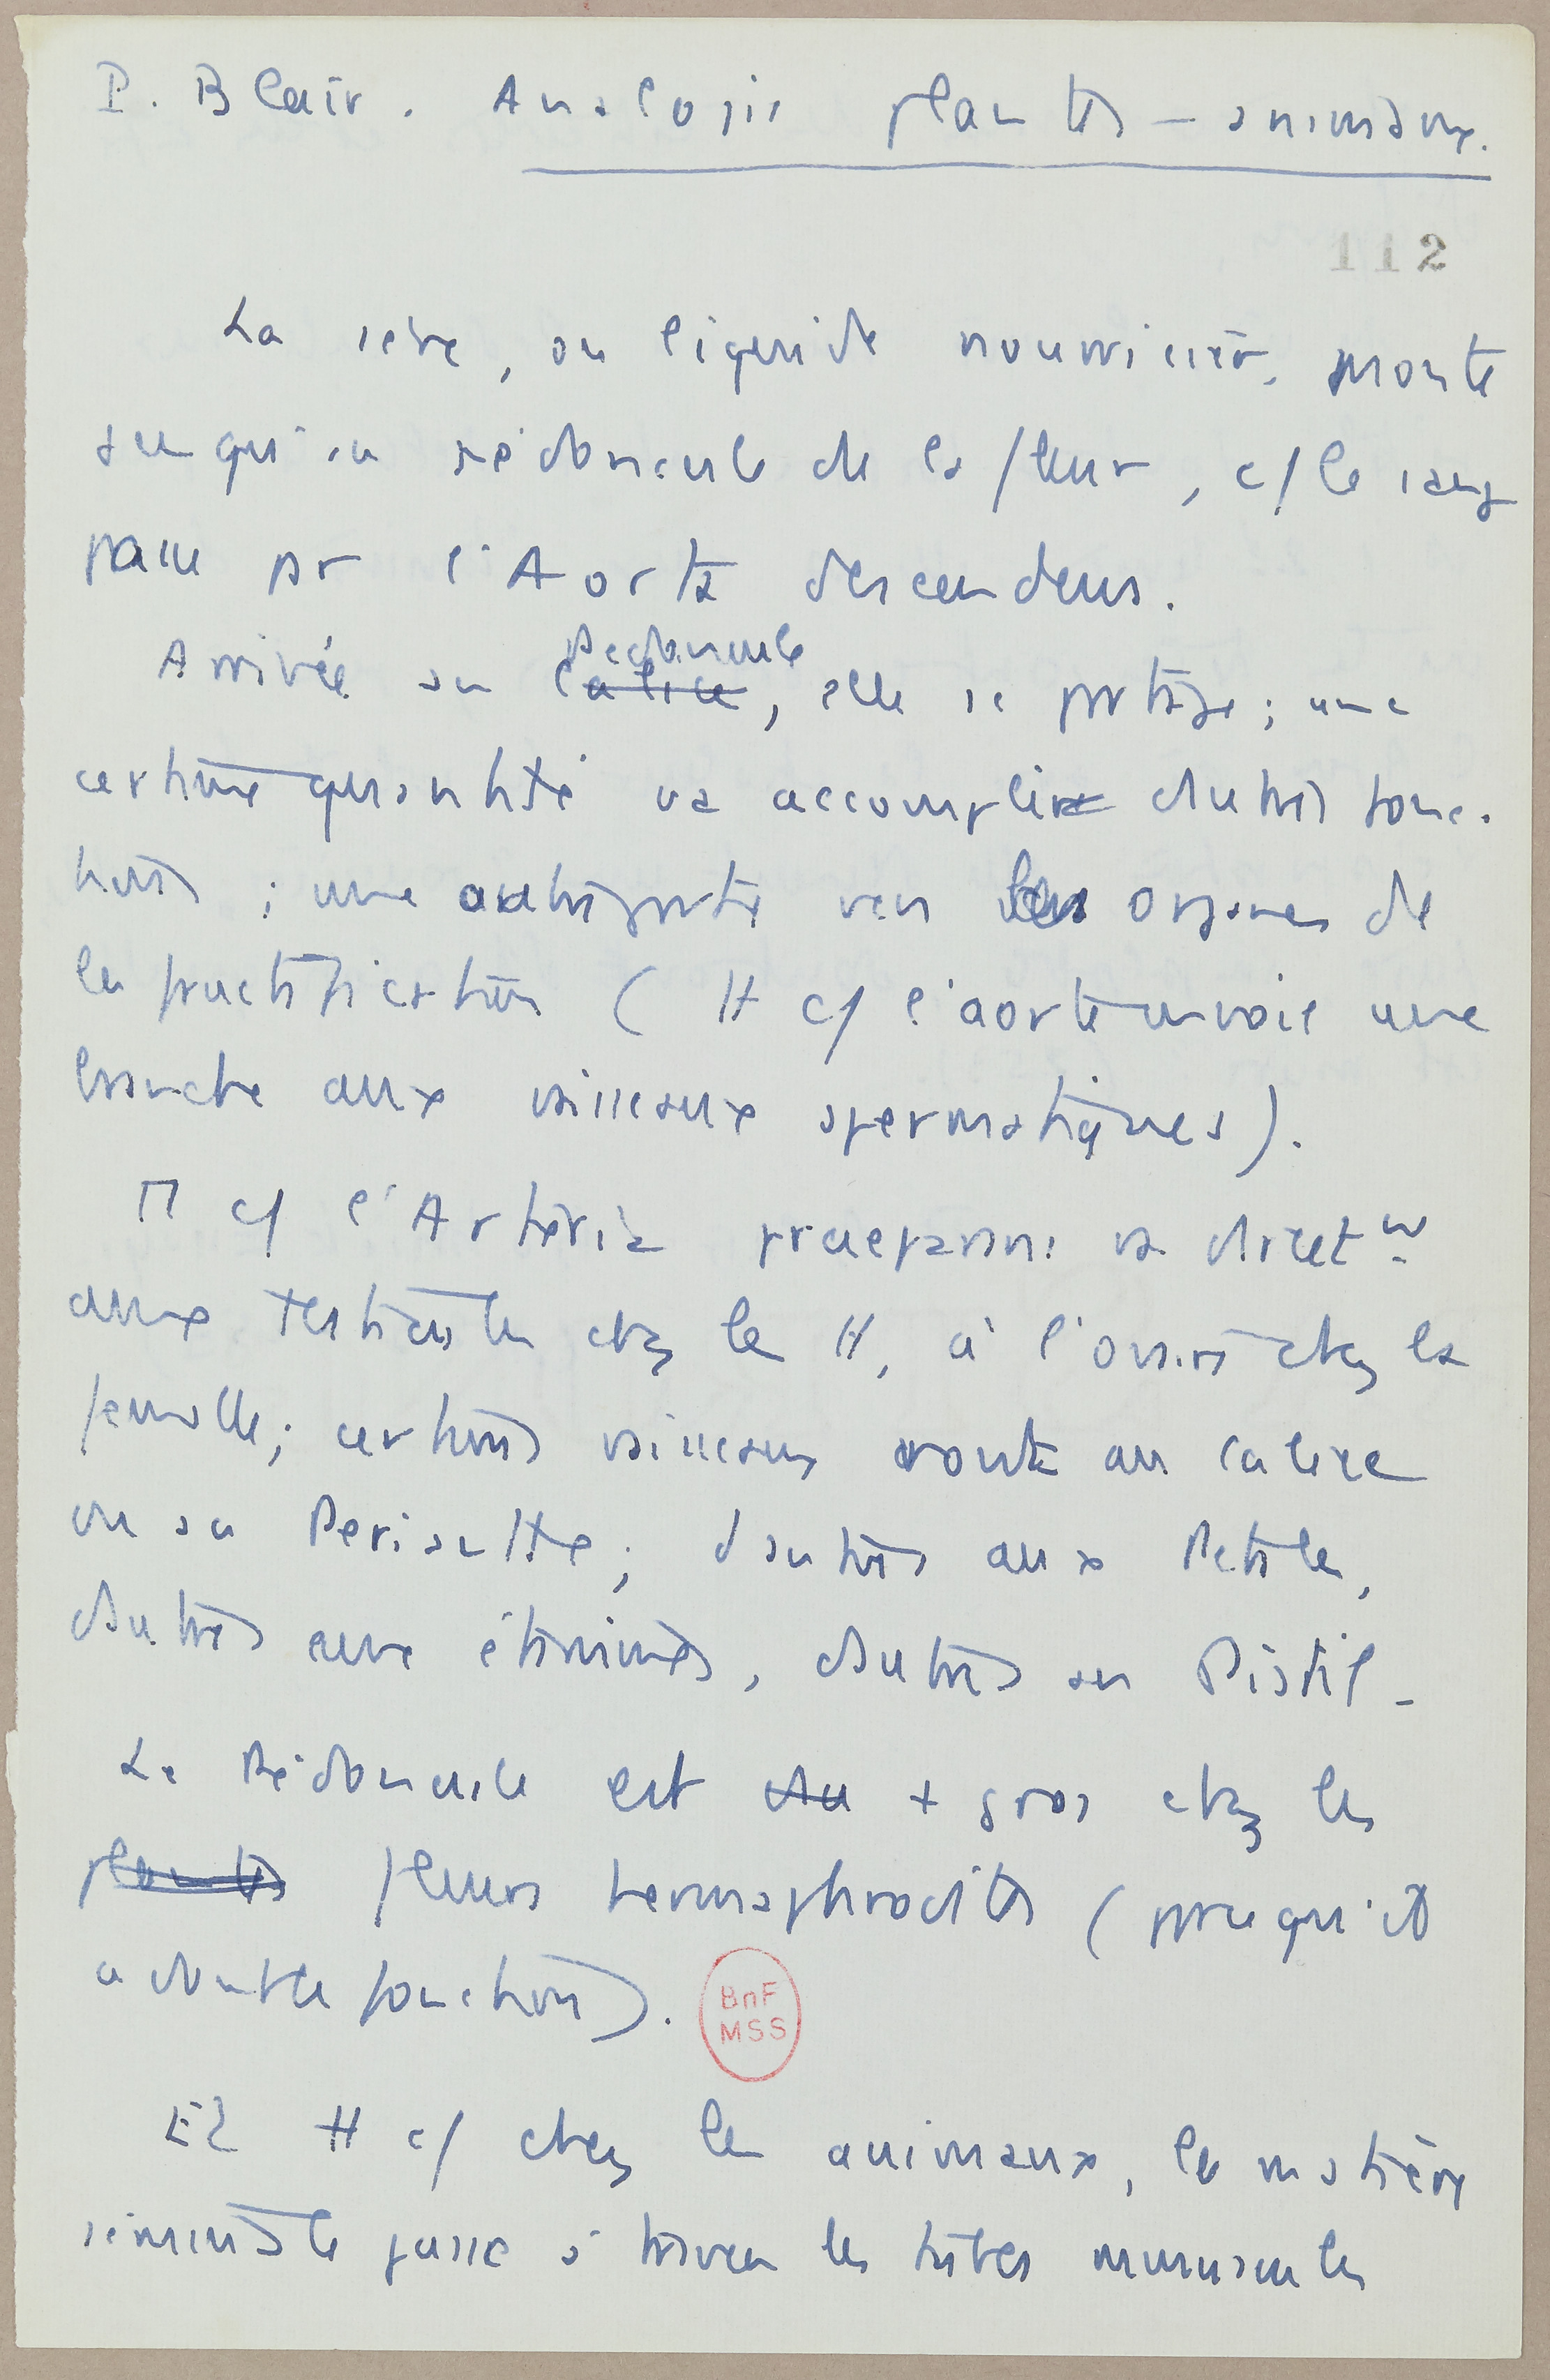 P. Blair. Analogie plantes – animaux.
112
La sève, ou liquide nourricier, monte
jusqu'au pédoncule de la fleur, c/ le sang
passe pr l'Aorta descendens.
Pedoncule
Arrivée au calice, elle se partage ; une
certaine quantité va accomplir d'autres fonc-
tions ; une autre partie vers les organes de
la fructification ( H c/ l'aorte envoie une
branche aux vaisseaux spermatiques).
П c/ l'Arteria praeparans va directm
aux testicules chez le H, à l'ovaire chez la
femelle ; certains vaisseaux vont au calice
ou au Perianthe ; d'autres aux Petales,
d'autres aux étamines, d'autres au Pistil -
Le Pédoncule est du + gros chez les
plantes fleurs hermaphrodites ( parce qu'il
a double fonction).
BnF
MSS
Et H c/ chez les animaux, la matière
séminale passe à travers les tubes minuscules